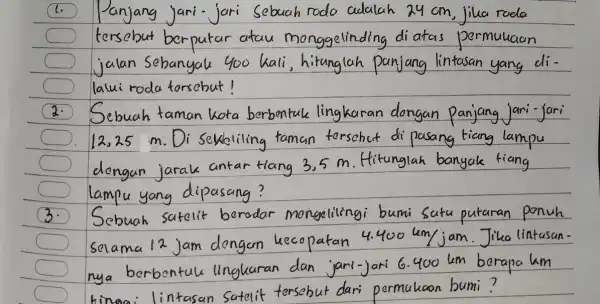 1. Panjang jari-jari sebuah roda adalah 24 cm, jika roda
tersebut berputar atau menggelinding di atas permukaan
jalan sebanyak 400 kali, hitunglah panjang lintasan yang di-
lalui roda tersebut !
2. Sebuah taman kota berbentuk lingkaran dengan panjang jari-jari
12,25 m. Di sekeliling taman tersebut di pasang tiang lampu
dengan jarak antar tiang 3,5 m. Hitunglah banyak tiang
lampu yang dipasang ?
3. Sebuah satelit beredar mengelilingi bumi satu putaran penuh
selama 12 jam dengan kecepatan 4.400 km/jam. Jika lintasan-
nya berbentuk lingkaran dan jari-jari 6.400 km berapa km
tinggi lintasan satelit tersebut dari permukaan bumi ?